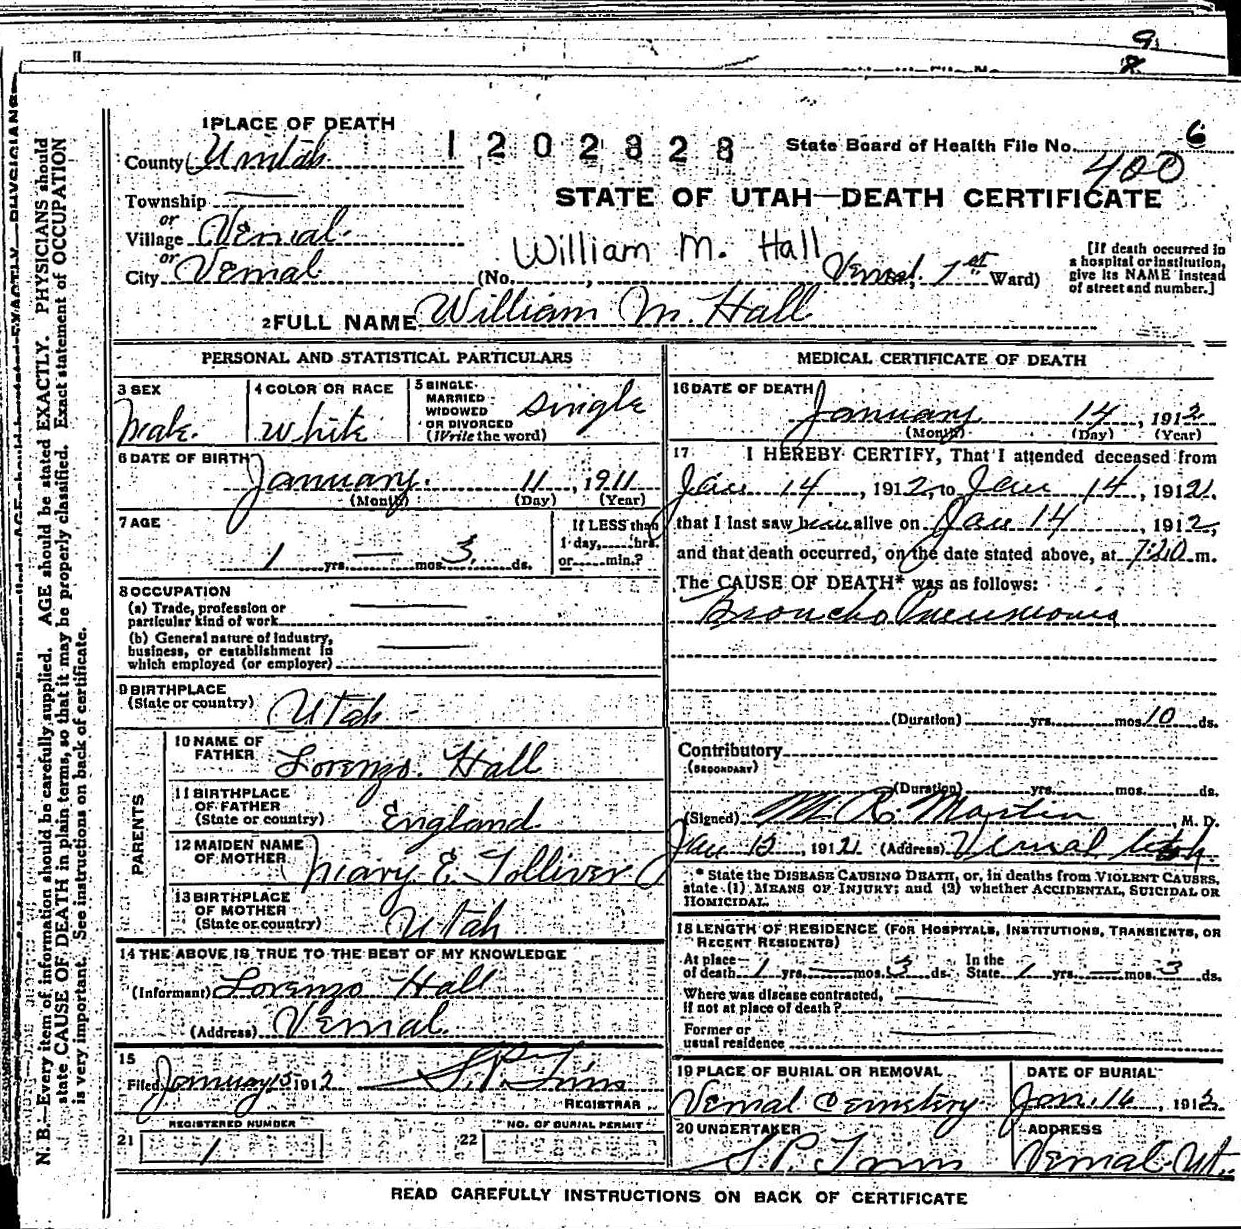 9
8
1 PLACE OF DEATH
County Uintah
1202828
State Board of Health File No. 6
400
Township
or
STATE OF UTAH—DEATH CERTIFICATE
Village Vernal
or
William M. Hall
City Vernal (No. , Vernal, 1st Ward)
[If death occurred in
a hospital or institution,
give its NAME instead
of street and number.]
2 FULL NAME William M. Hall
PERSONAL AND STATISTICAL PARTICULARS
3 SEX
Male.
4 COLOR OR RACE
White
5 SINGLE
MARRIED
WIDOWED
OR DIVORCED
(Write the word)
Single
6 DATE OF BIRTH
January. 11, 1911
(Month) (Day) (Year)
7 AGE
1 yrs. — mos. 3 ds.
If LESS than
1 day, hrs.
or min.?
8 OCCUPATION
(a) Trade, profession or
particular kind of work
(b) General nature of industry,
business, or establishment in
which employed (or employer)
9 BIRTHPLACE
(State or country) Utah
PARENTS
10 NAME OF
FATHER Lorenzo Hall
11 BIRTHPLACE
OF FATHER
(State or country) England
12 MAIDEN NAME
OF MOTHER Mary E. Tolliver
13 BIRTHPLACE
OF MOTHER
(State or country) Utah
14 THE ABOVE IS TRUE TO THE BEST OF MY KNOWLEDGE
(Informant) Lorenzo Hall
(Address) Vernal
15
Filed January 15 1912
REGISTRAR
21
REGISTERED NUMBER
1
22
NO. OF BURIAL PERMIT
MEDICAL CERTIFICATE OF DEATH
16 DATE OF DEATH
January 14, 1912
(Month) (Day) (Year)
17 I HEREBY CERTIFY, That I attended deceased from
Jan 14, 1912, to Jan 14, 1912.
that I last saw him alive on Jan 14, 1912,
and that death occurred, on the date stated above, at 7:20 m.
The CAUSE OF DEATH* was as follows:
Broncho Pneumonia
(Duration) yrs. mos. 10 ds.
Contributory
(SECONDARY)
(Duration) yrs. mos. ds.
(Signed) M. R. Martin, M. D.
Jan 15, 1912 (Address) Vernal Utah.
* State the DISEASE CAUSING DEATH, or, in deaths from VIOLENT CAUSES,
state (1) MEANS OF INJURY; and (2) whether ACCIDENTAL, SUICIDAL OR
HOMICIDAL.
18 LENGTH OF RESIDENCE (FOR HOSPITALS, INSTITUTIONS, TRANSIENTS, OR
RECENT RESIDENTS)
At place In the
of death 1 yrs. — mos. 3 ds. State 1 yrs. — mos. 3 ds.
Where was disease contracted,
if not at place of death?
Former or
usual residence
19 PLACE OF BURIAL OR REMOVAL
Vernal Cemetery
DATE OF BURIAL
Jan. 16, 1912
20 UNDERTAKER
ADDRESS
Vernal Ut.
READ CAREFULLY INSTRUCTIONS ON BACK OF CERTIFICATE
N. B.—Every item of information should be carefully supplied. AGE should be stated EXACTLY. PHYSICIANS should
state CAUSE OF DEATH in plain terms, so that it may be properly classified. Exact statement of OCCUPATION
is very important. See instructions on back of certificate.